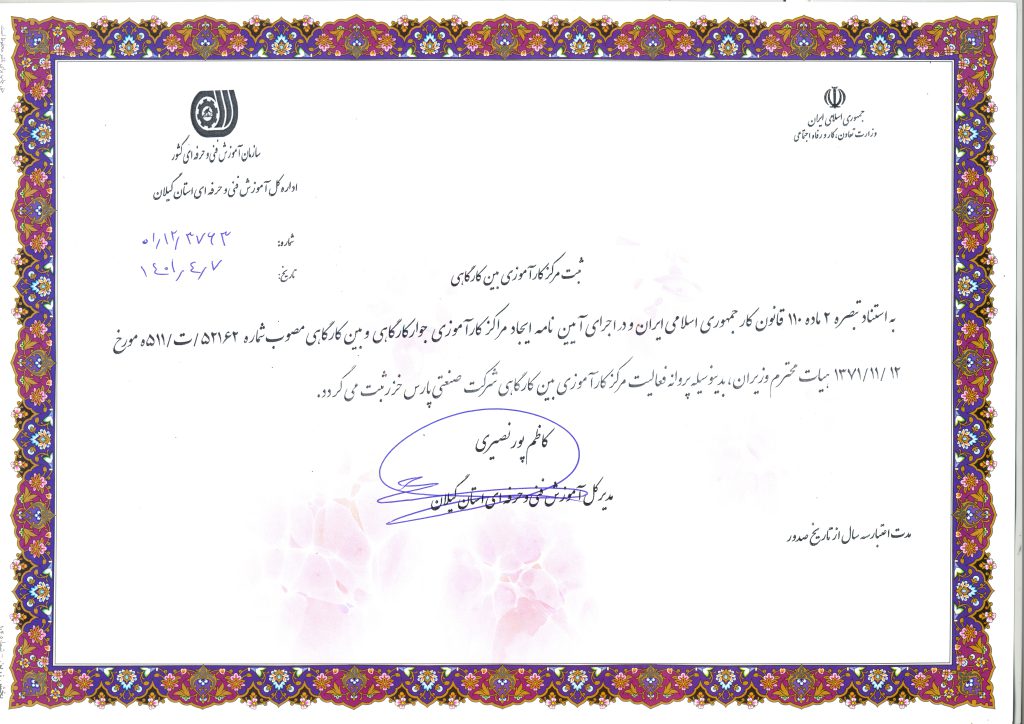 جمهوری اسلامی ایران
وزارت تعاون، کار و رفاه اجتماعی
سازمان آموزش فنی و حرفه ای کشور
اداره کل آموزش فنی و حرفه ای استان گیلان
شماره: ۰۱/۱۲/۳۷۶۳
تاریخ: ۱۴۰۱/۴/۷
ثبت مرکز کارآموزی بین کارگاهی
به استناد تبصره ۲ ماده ۱۱۰ قانون کار جمهوری اسلامی ایران و در اجرای آیین نامه ایجاد مراکز کارآموزی جوار کارگاهی و بین کارگاهی مصوب شماره ۵۲۱۶۲/ت/۵۱۱ه مورخ
۱۳۷۱/۱۱/۱۲ هیات محترم وزیران، بدینوسیله پروانه فعالیت مرکز کارآموزی بین کارگاهی شرکت صنعتی پارس خزر ثبت می گردد.
کاظم پور نصیری
مدیر کل آموزش فنی و حرفه ای استان گیلان
مدت اعتبار سه سال از تاریخ صدور